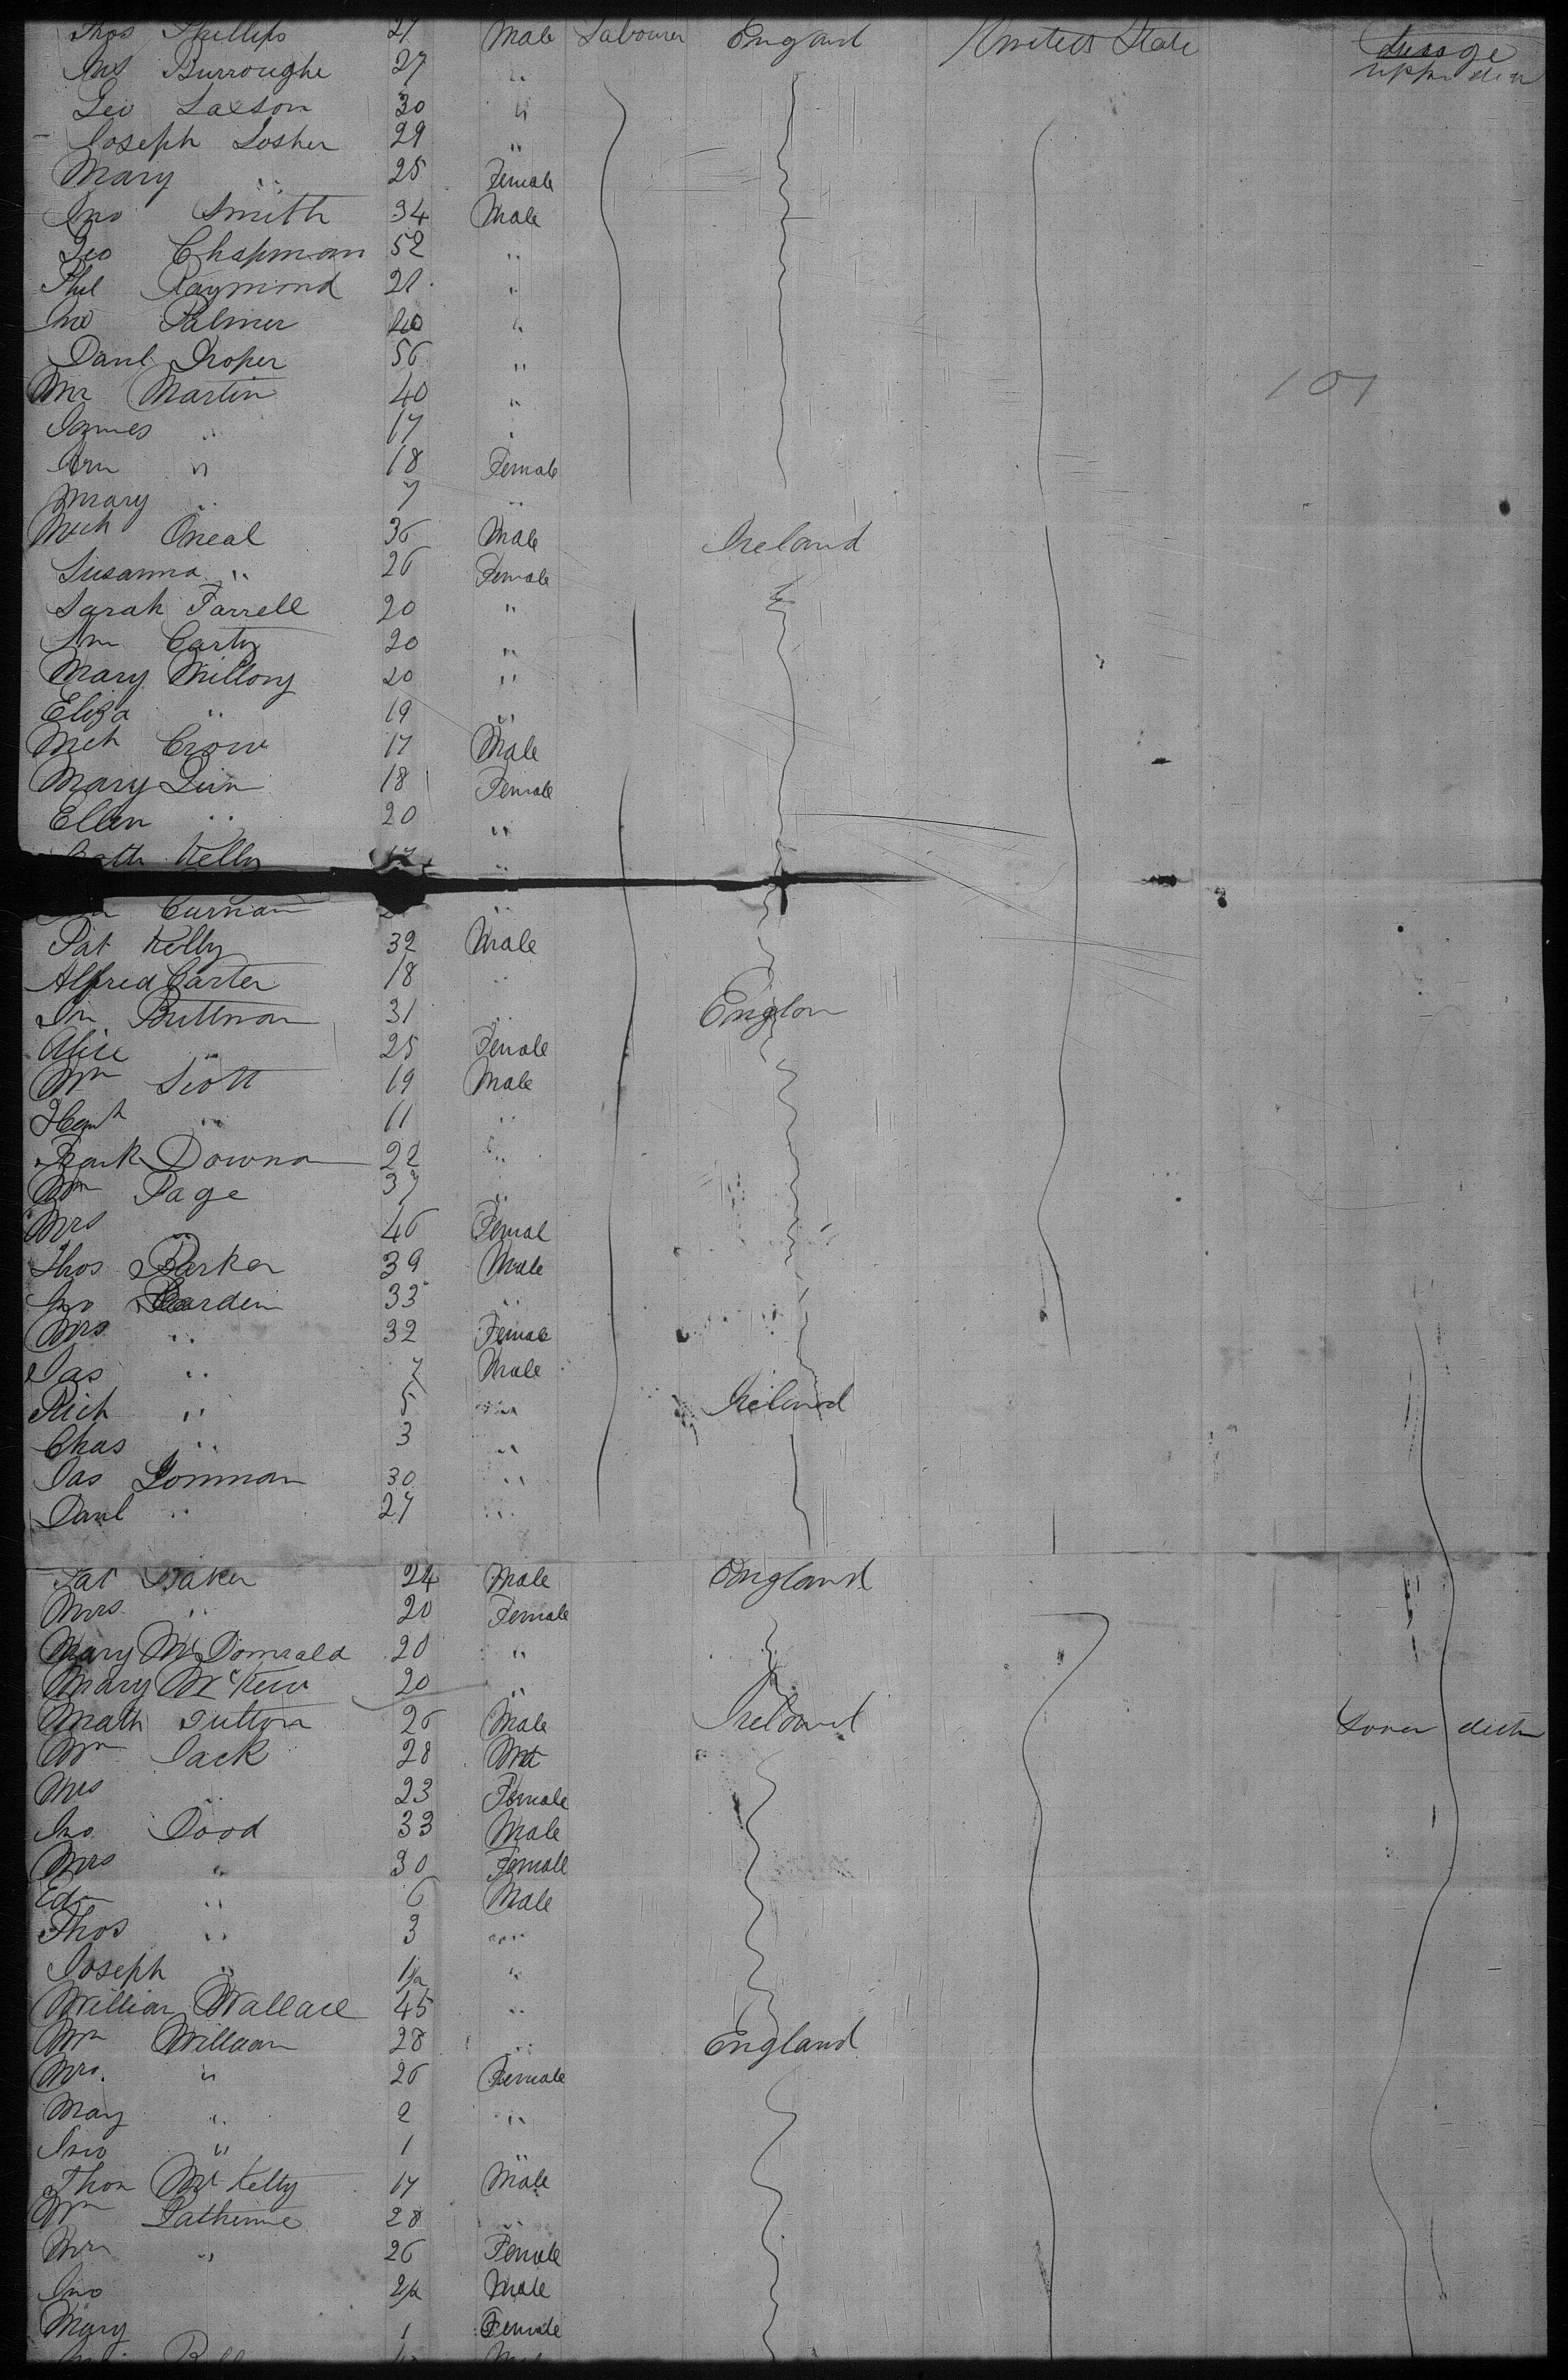 Thos Phillips 21 Male Labourer England United State
Jas Burroughs 27 "
upper deck
Geo Laxson 30 "
Joseph Losher 29 "
Mary " 25 Female
Jno Smith 34 Male
Geo Chapman 52 "
Phil Raymond 21 "
Jno Palmer 40 "
Danl Droper 56 "
Mr Martin 40 " 101
James " 17 "
Ann " 18 Female
Mary " 7 "
Mich Oneal 36 Male Ireland
Susanna " 26 Female
Sarah Farrell 20 "
Ann Carty 20 "
Mary Millony 20 "
Eliza " 19 "
Mch Crow 17 Male
Mary Quin 18 Female
Ellen " 20 "
Cath Kelly "
Curnan "
Pat Kelly 32 Male
Alfred Carter 18 "
Jn Bultman 31 " Englan
Alice " 25 Female
Wm Scott 19 Male
" 11 "
Frank Downa 22 "
Wm Page 37 "
Mrs " 46 Femal
Thos Parker 39 Male
Jno Barden 33 "
Mrs " 32 Female
Jas " 7 Male
Rich " 5 " Ireland
Chas " 3 "
Jas Lomman 30 "
Danl " 27 "
Pat Baker 24 Male England
Mrs " 20 Female
Mary McDonnald 20 "
Mary McKew 20 "
Math Sutton 26 Male Ireland Lower deck
Wm Jack 28 "
Mrs " 23 Female
Jno Dood 33 Male
Mrs " 30 Female
Edn " 6 Male
Thos " 3 "
Joseph " 1/2 "
William Wallace 45 "
Wm Willaam 28 " England
Mrs. " 26 Female
May " 2 "
Jno " 1 "
Thon McKelty 17 Male
Wm Latherine 28 "
Mrs " 26 Female
Jno 2/12 Male
Mary 1 Female